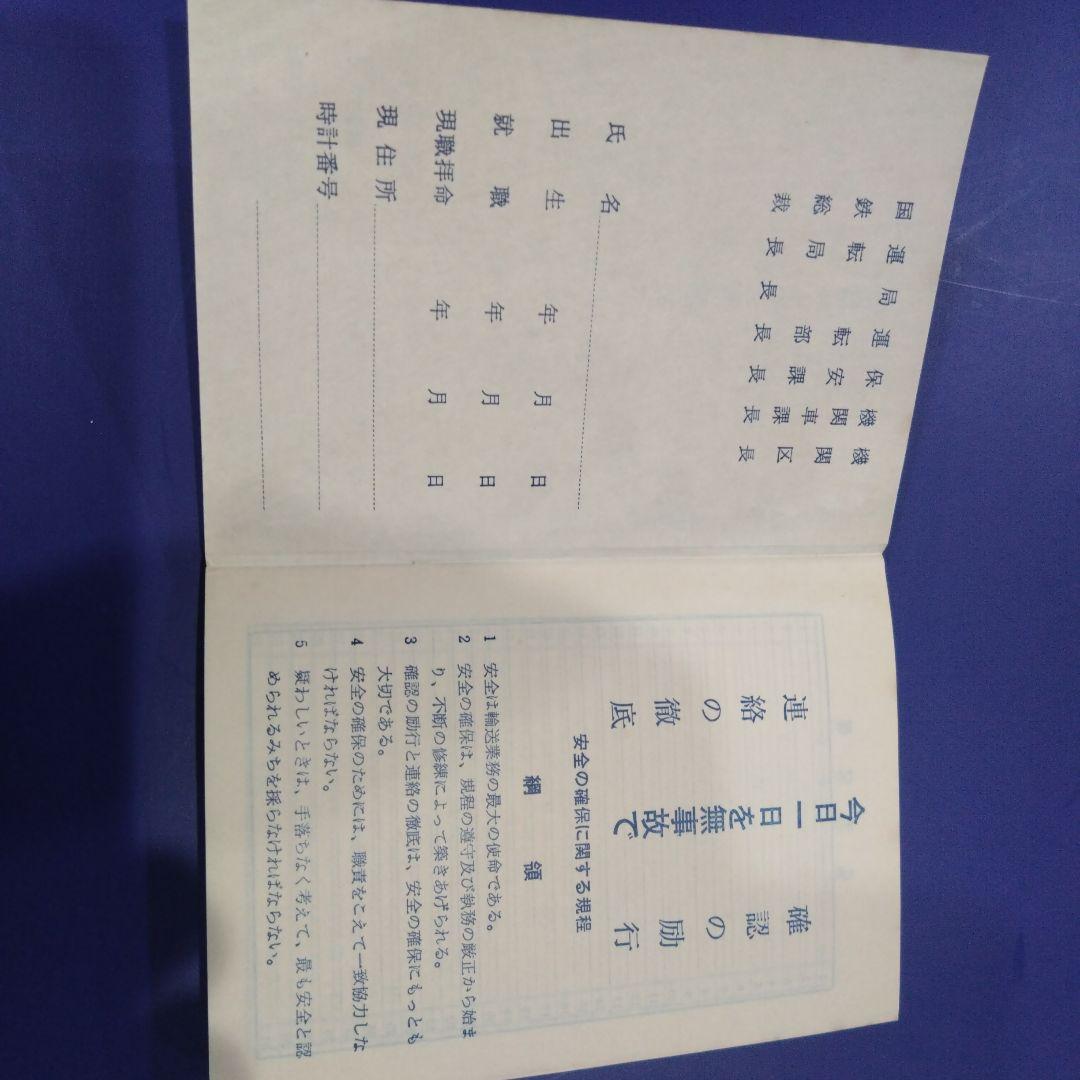 国鉄総裁
運転局長
局長
運転部長
保安課長
機関車課長
機関区長
氏名
出生 年 月 日
就職 年 月 日
現職拝命 年 月 日
現住所
時計番号
確認の励行
今日一日を無事故で
連絡の徹底
安全の確保に関する規程
綱領
1 安全は輸送業務の最大の使命である。
2 安全の確保は、規程の遵守及び執務の厳正から始ま
り、不断の修練によって築きあげられる。
3 確認の励行と連絡の徹底は、安全の確保にもっとも
大切である。
4 安全の確保のためには、職責をこえて一致協力しな
ければならない。
5 疑わしいときは、手落ちなく考えて、最も安全と認
められるみちを採らなければならない。